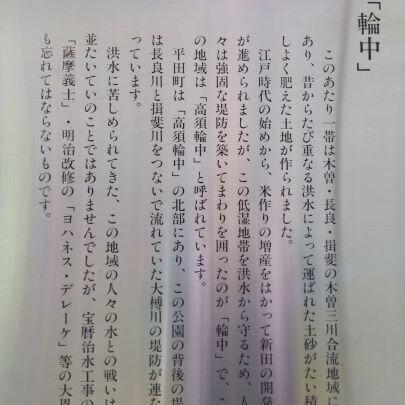 「輪中」
このあたり一帯は木曽・長良・揖斐の木曽三川合流地域に
あり、昔からたび重なる洪水によって運ばれた土砂がたい積
しよく肥えた土地が作られました。
江戸時代の始めから、米作りの増産をはかって新田の開発
が進められましたが、この低湿地帯を洪水から守るため、人
々は強固な堤防を築いてまわりを囲ったのが「輪中」で、こ
の地域は「高須輪中」と呼ばれています。
平田町は「高須輪中」の北部にあり、この公園の背後の堤
は長良川と揖斐川をつないで流れていた大榑川の堤防が連な
っています。
洪水に苦しめられてきた、この地域の人々の水との戦いは
並たいていのことではありませんでしたが、宝暦治水工事の
「薩摩義士」・明治改修の「ヨハネス・デレーケ」等の大恩
も忘れてはならないものです。